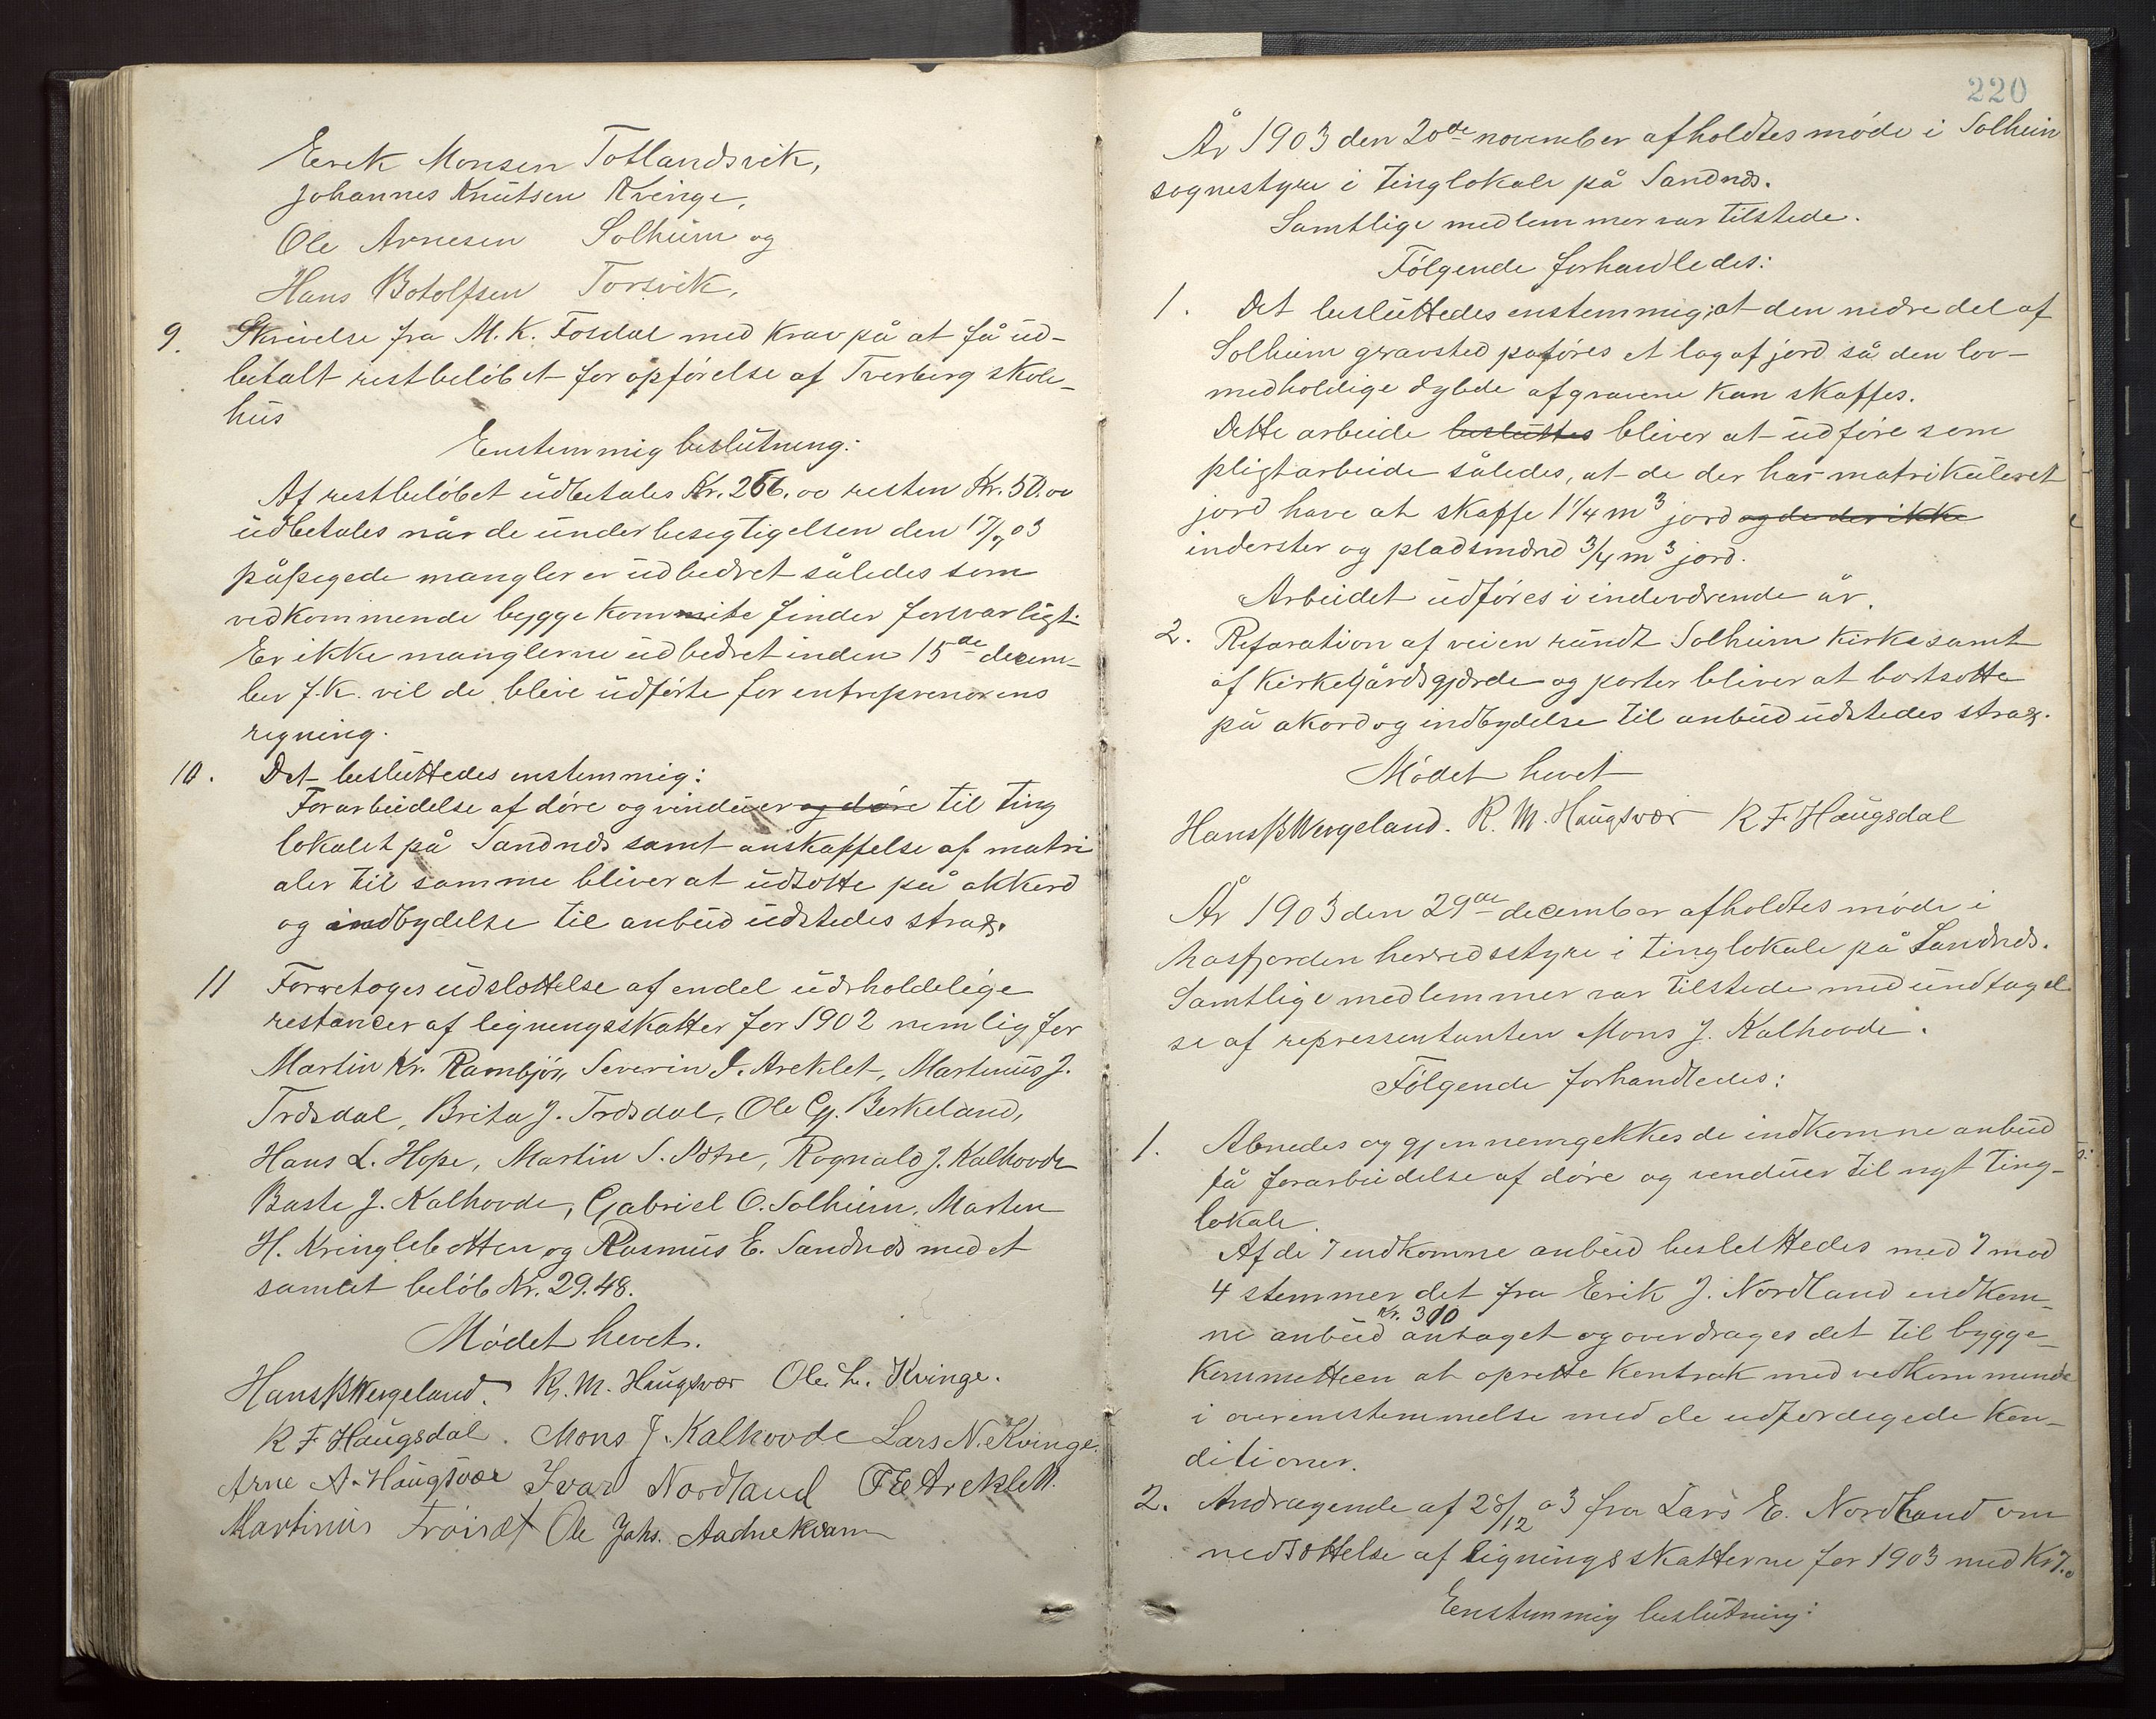 Eerik Monsen Totlandsvik,
Johannes Knutsen Kvinge,
Ole Arnesen Solheim og
Hans Botolfsen Torsvik,
9. Skrivelse fra M. K. Fosdal med krav på at få ud-
betalt restbeløbet for opførelse af Tverberg skole-
hus
Enstemmig beslutning:
Af restbeløbet udbetales Kr. 266.00 resten Kr. 50.00
udbetales når de under besegtigelsen den 17/7 03
påpegede mangler er udbedret således som
vedkommende byggekommite finder forsvarligt.
Er ikke manglerne udbedret inden 15de decem-
ber f.k. vil de blive udførte for entreprenørens
regning.
10. Det besluttedes enstemmig:
Forarbeidelse af døre og vinduer og døre til ting
lokalet på Sandnæs samt anskaffelse af matri
aler til samme bliver at udsætte på akkord
og indbydelse til anbud udstedes strax.
11 Forretoges udslettelse af endel udholdelige
restancer af ligningsskatter for 1902 nemlig for
Martin Kr. Rambjør, Severin I. Areklet, Martinus J.
Træsdal, Brita J. Træsdal, Ole Gj. Berkeland,
Hans L. Hope, Martin S. Nætre, Rognald J. Kalhovde
Baste J. Kalhovde, Gabriel O. Solheim, Marten
H. Kringlebotten og Rasmus E. Sandnæs med et
samlet beløb Kr. 29.48.
Mødet hevet.
Hans B Wergeland. R. M. Haugsvær Ole L. Kvinge.
R F Haugsdal. Mons J. Kalhovde Lars N. Kvinge.
Arne A. Haugsvær Ivar Nordland T E Areklett.
Martinus Frøiset Ole Johs. Aadnekvam
220
År 1903 den 20de november afholdtes møde i Solheim
sognestyre i tinglokale på Sandnæs.
Samtlige medlemmer var tilstede.
Følgende forhandledes:
1. Det besluttedes enstemmig: at den nedre del af
Solheim gravsted paføres et lag af jord så den lov-
medholdige dybde af gravene kan skaffes.
Dette arbeide besluttes bliver at udføre som
pligtarbeide således, at de der har matrikuleret
jord have at skaffe 1 1/4 m3 jord og de der ikke
inderster og pladsmænd 3/4 m3 jord.
Arbeidet udføres i indeværende år.
2. Reparation af veien rundt Solheim kirke samt
af kirkegårdsgjærde og porter bliver at bortsætte
på akord og indbydelse til anbud udstedes strax.
Mødet hevet
Hans B Wergeland. R. M. Haugsvær R F Haugsdal
År 1903 den 29de december afholdtes møde i
Masfjorden herredsstyre i tinglokale på Sandnæs.
Samtlige medlemmer var tilstede med undtagel
se af repressentanten Mons J. Kalhovde.
Følgende forhandledes:
1. Abnedes og gjennemgekkes de indkomne anbud
på forarbeidelse af døre og venduer til nyt ting-
lokale.
Af de 7 indkomne anbud beslettedes med 7 mod
4 stemmer det fra Erik J. Nordland indkom-
kr. 310
ne anbud antaget og overdrages det til bygge-
kommetteen at oprette kontrak med vedkommende
i overenstemmelse med de udferdegede kon-
ditioner.
2. Andragende af 28/12 03 fra Lars E. Nordland om
nedsættelse af ligningsskatterne for 1903 med Kr 7.0
Eenstemmig beslutning: